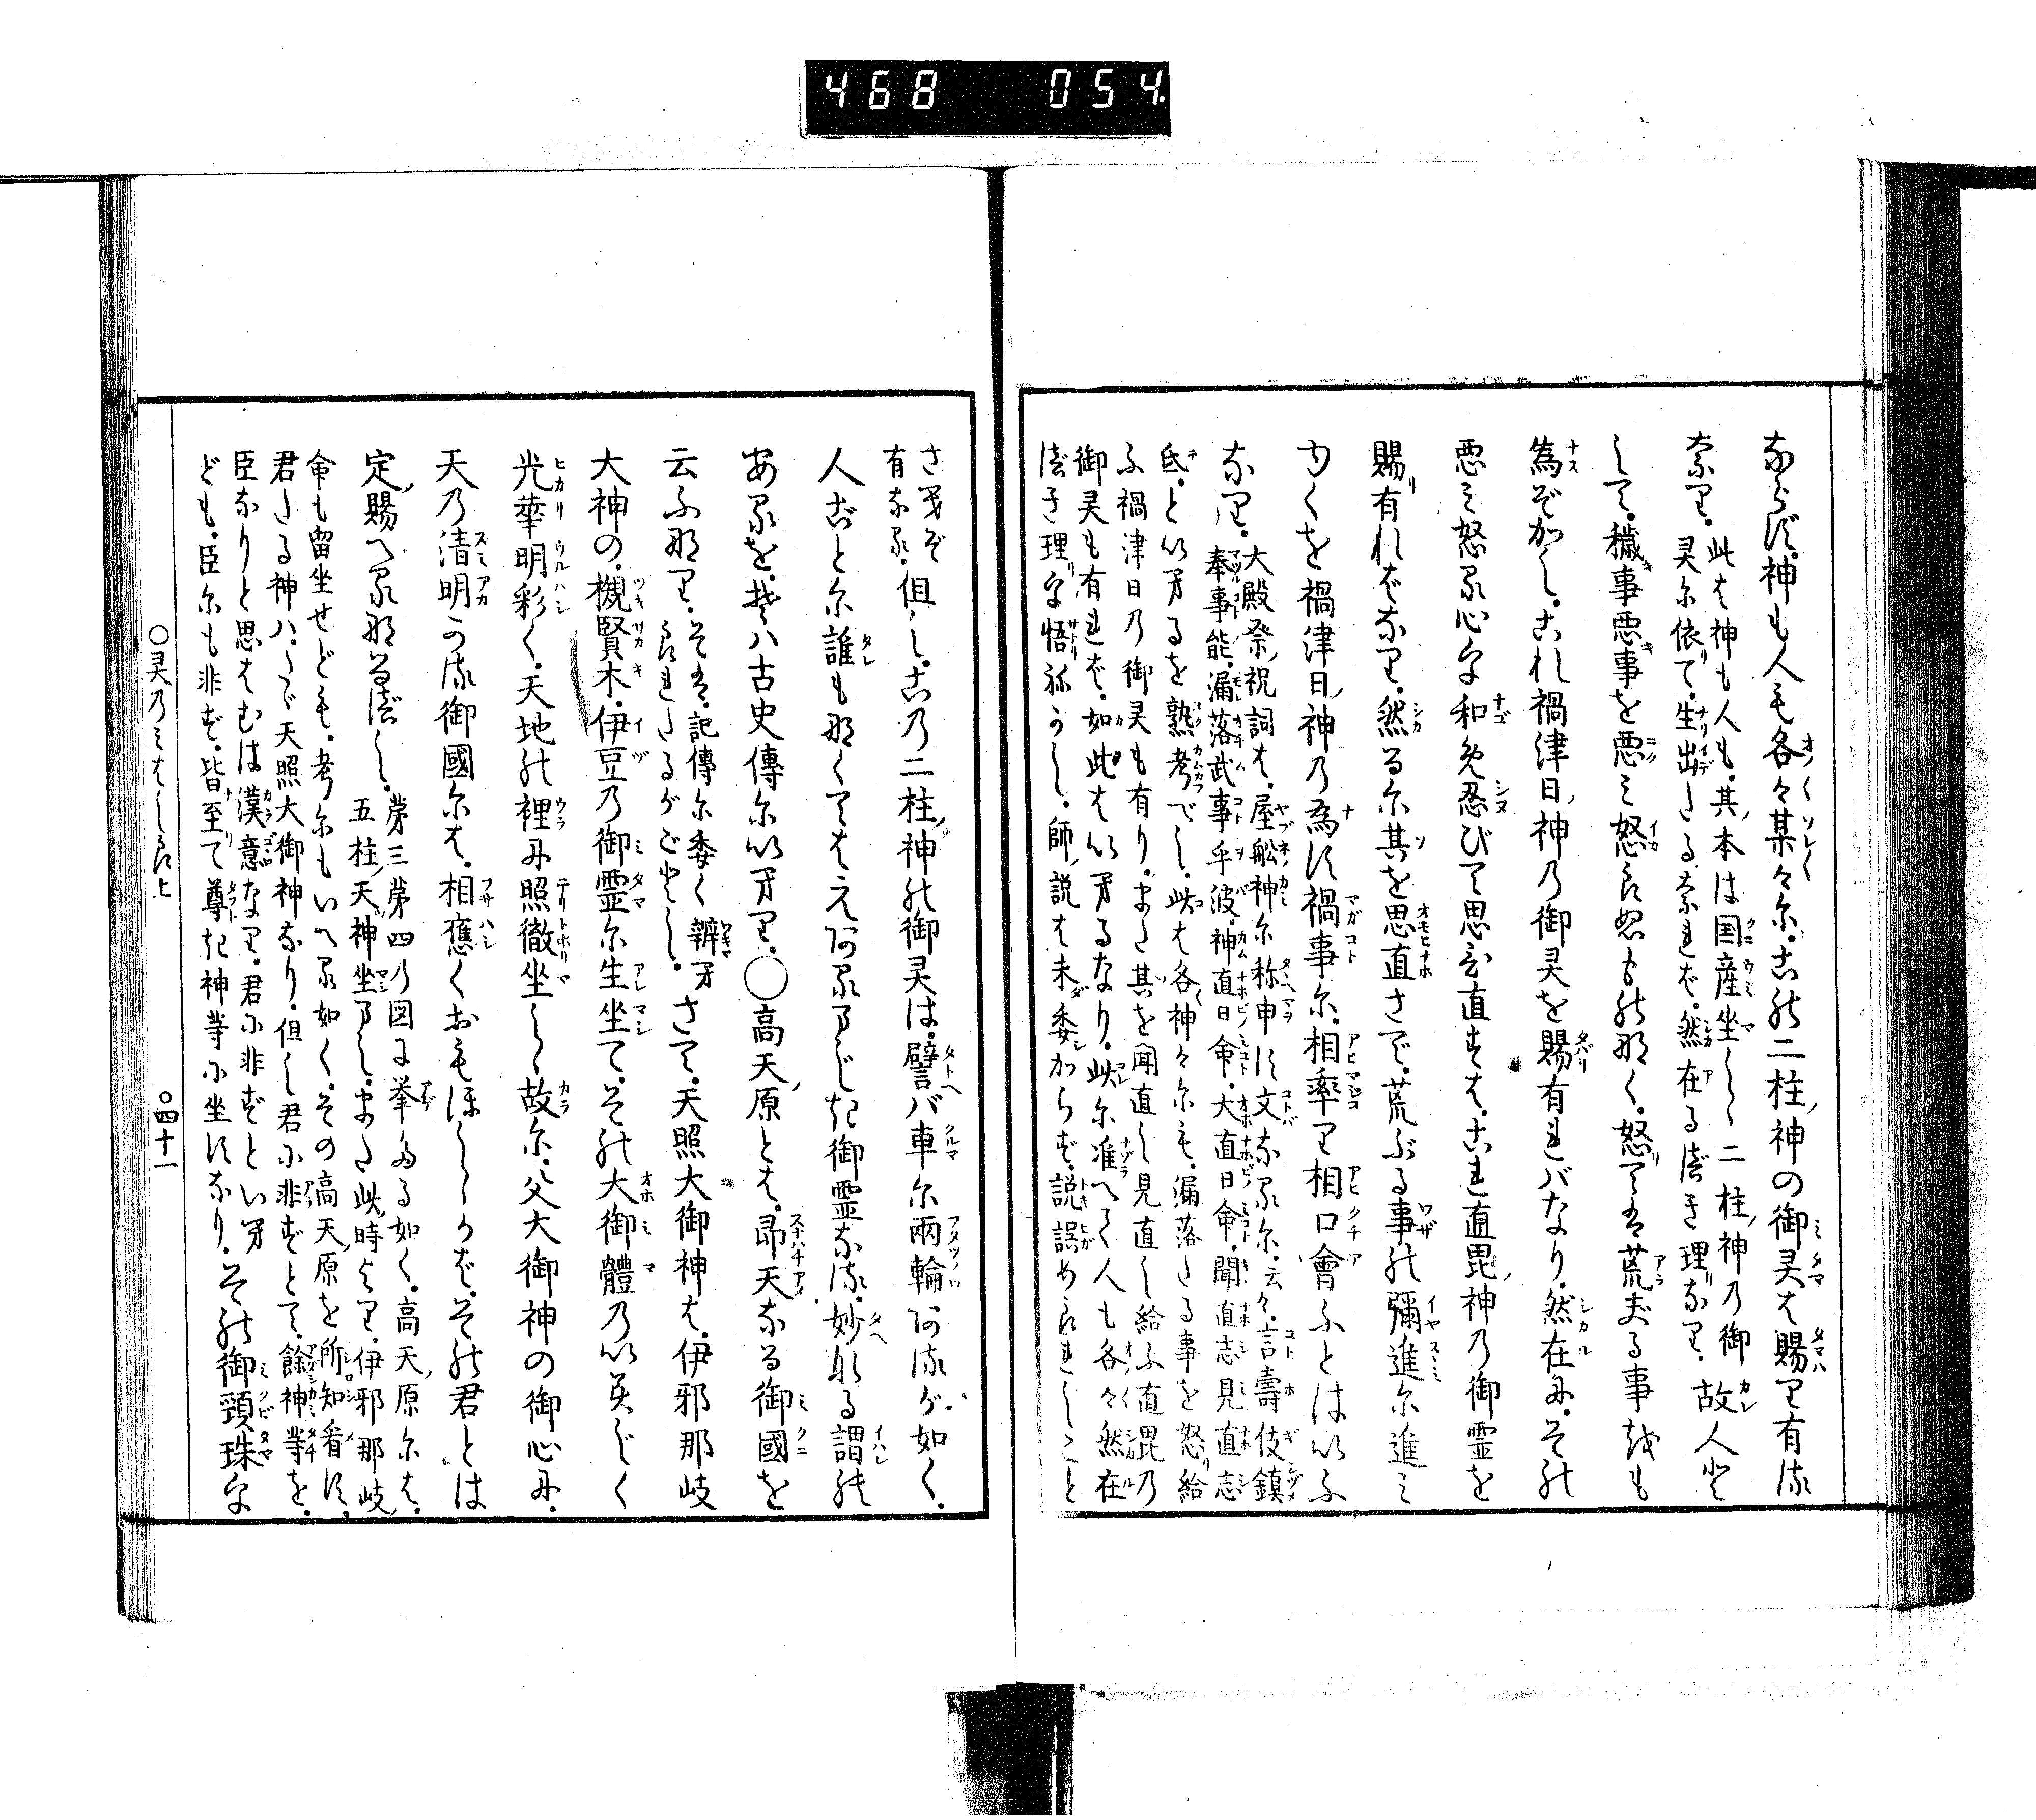 468 054
ならず。神も人も各々某々に。この二柱ノ神の御灵は賜り有る
なり。此は神も人も。其ノ本は国産坐しし二柱ノ神乃御
灵に依りて。生出たるなれば。然在るべき理りなり。故人と
して。穢事悪事を悪み怒らぬものなく。怒りては荒ぶる事をも
為ぞかし。これ禍津日ノ神乃御灵を賜り有ればなり。然在に。その
悪み怒る心を和め忍びて思ひ直すは。これ直毘ノ神乃御霊を
賜り有ればなり。然るに其を思直さで。荒ぶる事の彌進に進み
ゆくを禍津日ノ神乃為す禍事に。相率り相口會ふとはいふ
なり。大殿祭ノ祝詞は。屋船神に称申す文なるに。云々。言壽伎鎮
奉事能。漏落武事乎波。神直日命。大直日命。聞直志見直志
氐。といへるを熟考べし。此は各神々にも。漏落たる事を怒り給
ふ禍津日乃御灵も有り。また其を聞直し見直し給ふ直毘乃
御灵も有れば。如此はいへるなり。此に准へて人も各々然在
べき理りを悟ねかし。師ノ説は未委からず。説誤められしこと
さへぞ
有なる。但し。この二柱ノ神の御灵は。譬バ車に兩輪あるが如く。
人ごとに誰も无くてはえあるまじき御霊なる。妙なる謂の
あるを。そは古史傳にいへり。○高天ノ原とは。即天なる御國を
云ふなり。そは。記傳に委く辨へ
られたるがごとし。さて。天照大御神は。伊邪那岐
大神の。櫬賢木。伊豆乃御霊に生坐て。その大御體乃いみじく
光華明彩く。天地の裡に照徹坐し故に。父大御神の御心に。
天乃清明かる御國には。相應くおもほしゝかば。その君とは
定ノ賜へるなるべし。第三第四ノ図に挙たる如く。高天ノ原には。
五柱ノ天ツ神坐まし。また此ノ時より。伊邪那岐ノ
命も留坐せども。考にもいへる如く。その高天ノ原を所知看す。
君たる神ハ。たゞ天照大御神なり。但し君に非ずとて。餘神等を。
臣なりと思はむは漢意なり。君に非ずといへ
ども。臣にも非ず。皆至りて尊き神等に坐すなり。その御頸珠を
○灵乃みはしら上
○四十一